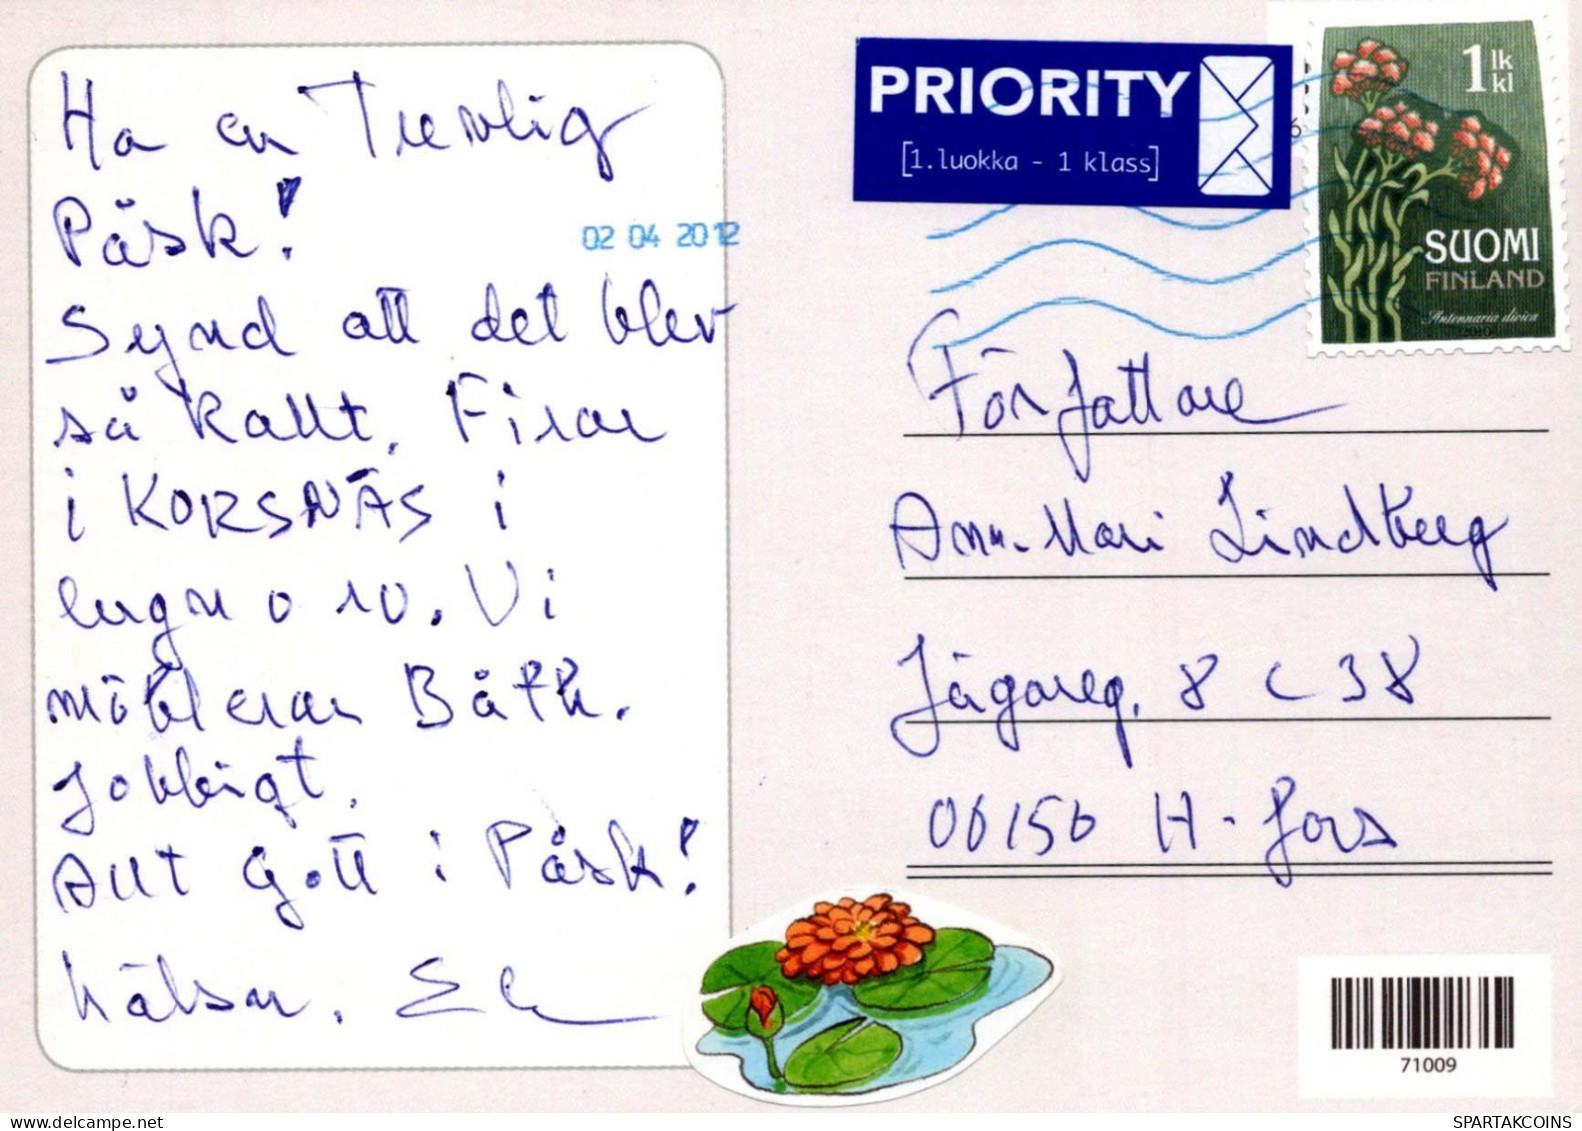 Ha en Trevlig
Påsk!
Synd att det blev
så kallt. Firar
i KORSNÄS i
lugn o ro. Vi
möblerar Båth.
Jobbigt.
Allt Gott i Påsk!
hälsn.
02 04 2012
PRIORITY
[1.luokka - 1 klass]
1 lk
kl
SUOMI
FINLAND
Antennaria dioica
2010
Författare
Ann-Mari Lindberg
Jägareg. 8 C 38
00150 H-fors
71009
SPARTAKCOINS